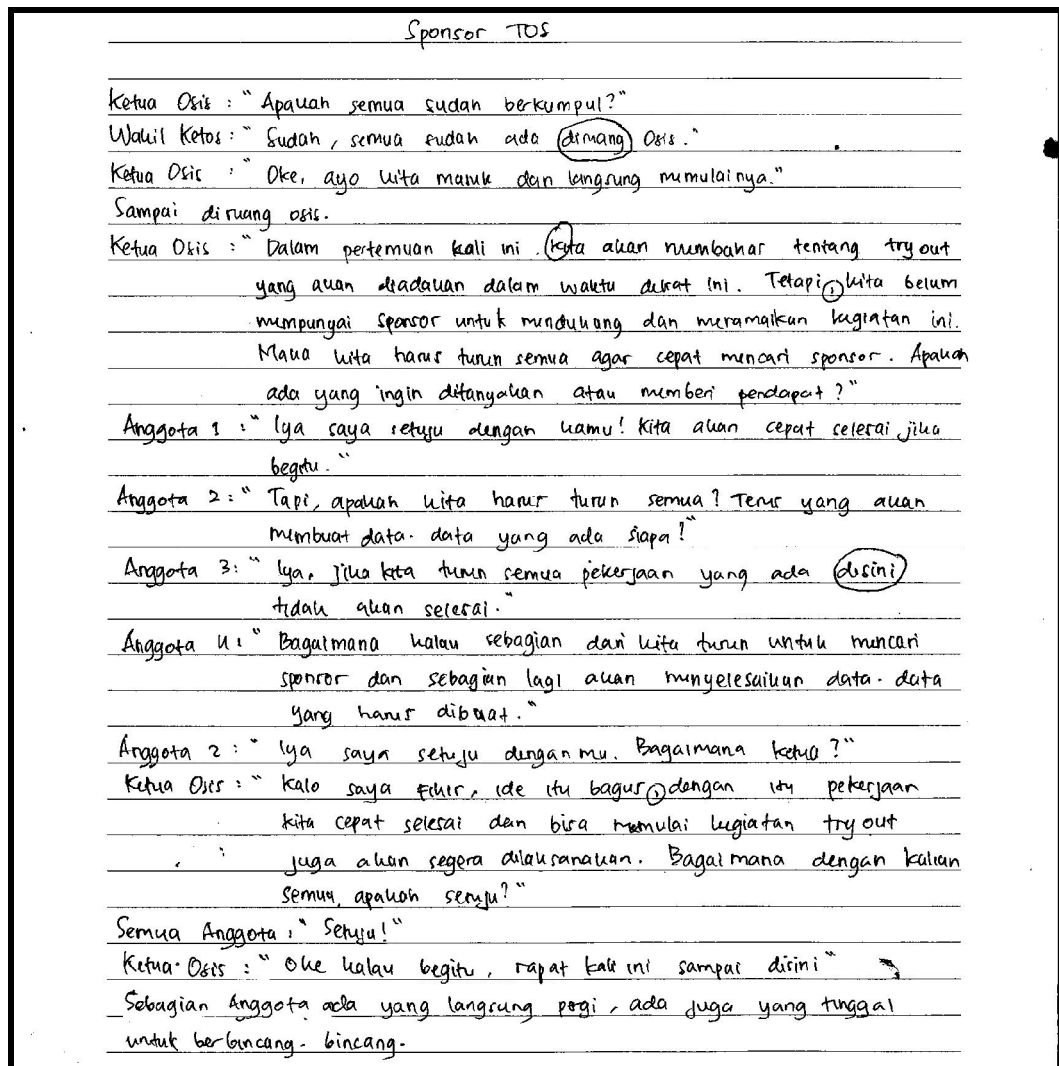 Sponsor TOS
Ketua Osis : " Apakah semua sudah berkumpul?"
Wakil Ketos : " Sudah, semua sudah ada diruang Osis."
Ketua Osis : " Oke, ayo kita masuk dan langsung memulainya."
Sampai diruang osis.
Ketua Osis : " Dalam pertemuan kali ini . kita akan membahas tentang try out
yang akan diadakan dalam waktu dekat ini. Tetapi, kita belum
mempunyai sponsor untuk mendukung dan meramaikan kegiatan ini.
Maka kita harus turun semua agar cepat mencari sponsor. Apakah
ada yang ingin ditanyakan atau memberi pendapat?"
Anggota 1 : " Iya saya setuju dengan kamu! Kita akan cepat selesai jika
begitu."
Anggota 2 : " Tapi, apakah kita harus turun semua? Terus yang akan
membuat data-data yang ada siapa?"
Anggota 3 : " Iya, jika kita turun semua pekerjaan yang ada disini
tidak akan selesai."
Anggota 4 : " Bagaimana kalau sebagian dari kita turun untuk mencari
sponsor dan sebagian lagi akan menyelesaikan data-data
yang harus dibuat."
Anggota 2 : " Iya saya setuju denganmu. Bagaimana ketua?"
Ketua Osis : " Kalo saya fikir, ide itu bagus, dengan itu pekerjaan
kita cepat selesai dan bisa memulai kegiatan try out
juga akan segera dilaksanakan. Bagaimana dengan kalian
semua, apakah setuju?"
Semua Anggota : " Setuju!"
Ketua Osis : " Oke kalau begitu, rapat kali ini sampai disini"
Sebagian Anggota ada yang langsung pergi, ada juga yang tinggal
untuk berbincang-bincang.